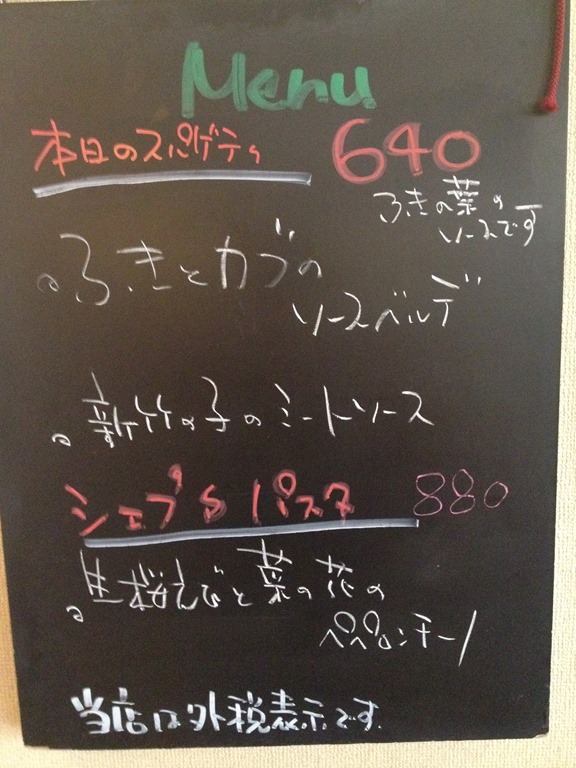 Menu
本日のスパゲティ 640
ふきの葉の
ソースです
ふきとカブの
ソースベルデ
新竹の子のミートソース
シェフ'sパスタ 880
生桜えびと菜の花の
ペペロンチーノ
当店は外税表示です.